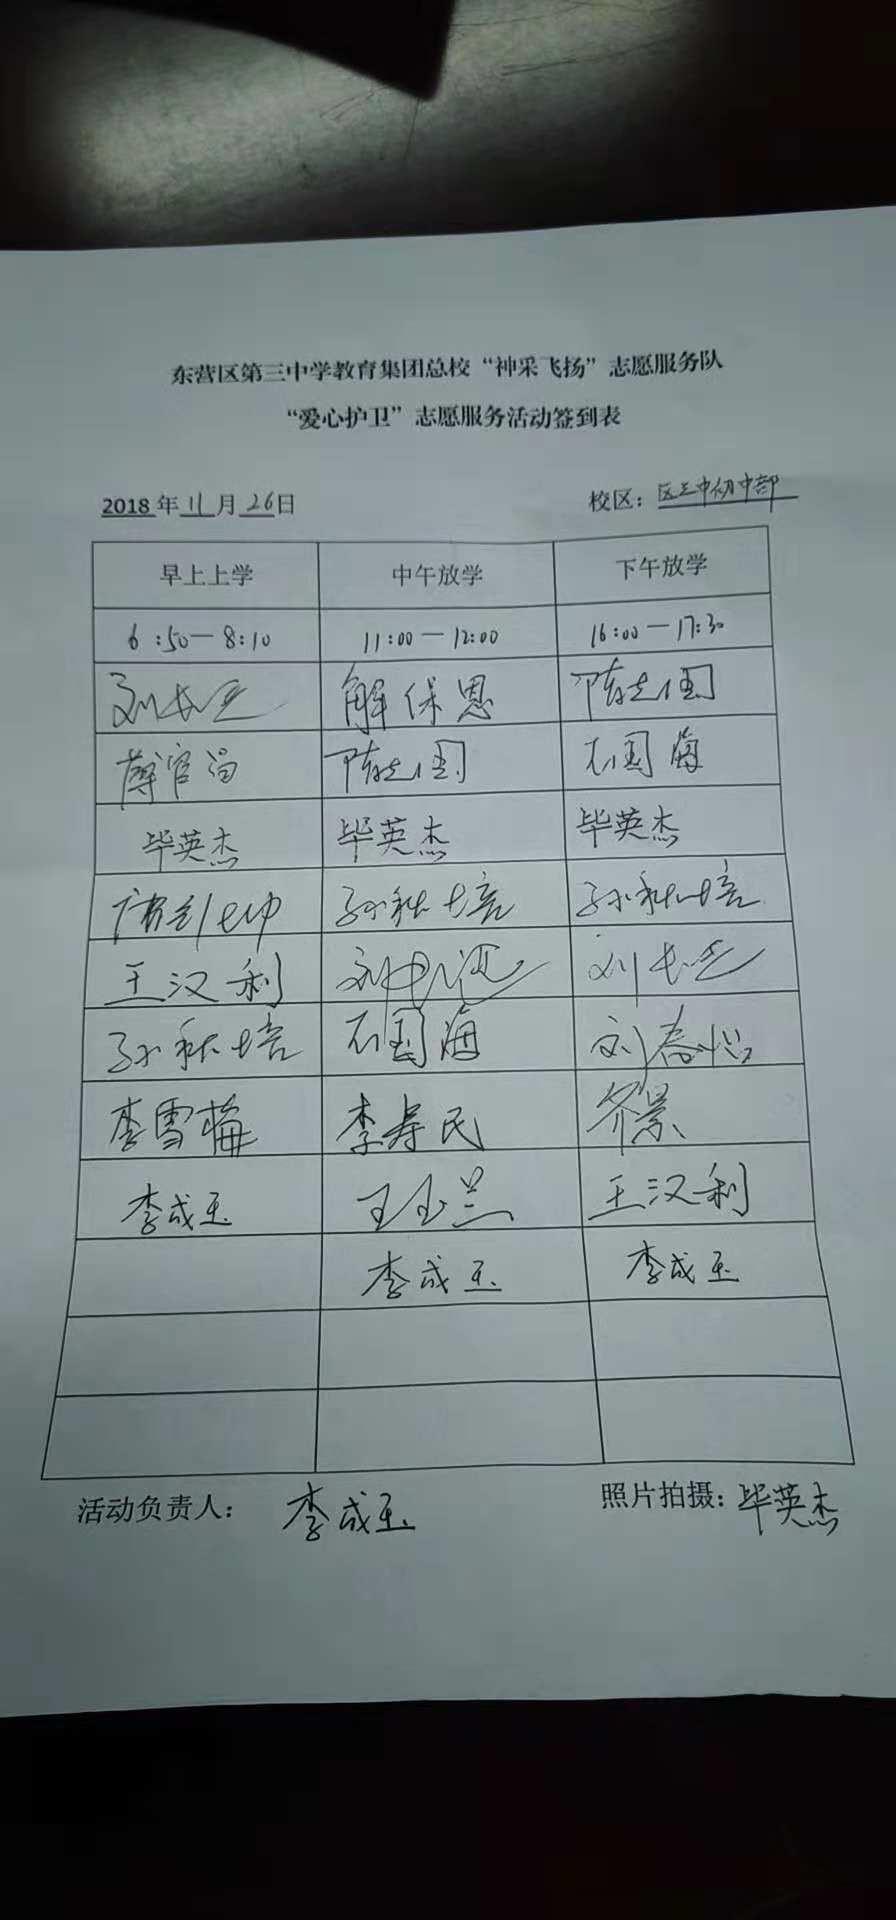 东营区第三中学教育集团总校“神采飞扬”志愿服务队
“爱心护卫”志愿服务活动签到表
2018年11月26日 校区：区三中初中部
早上上学 中午放学 下午放学
6:50—8:10 11:00—12:00 16:00—17:30
刘长 解保恩 陈志国
薄官 陈志国 石国海
毕英杰 毕英杰 毕英杰
孙秋培 孙秋培
王汉利 刘 刘长
孙秋培 石国海 刘春
李雪梅 李寿民 齐景
李成玉 王玉兰 王汉利
李成玉 李成玉
活动负责人：李成玉 照片拍摄：毕英杰